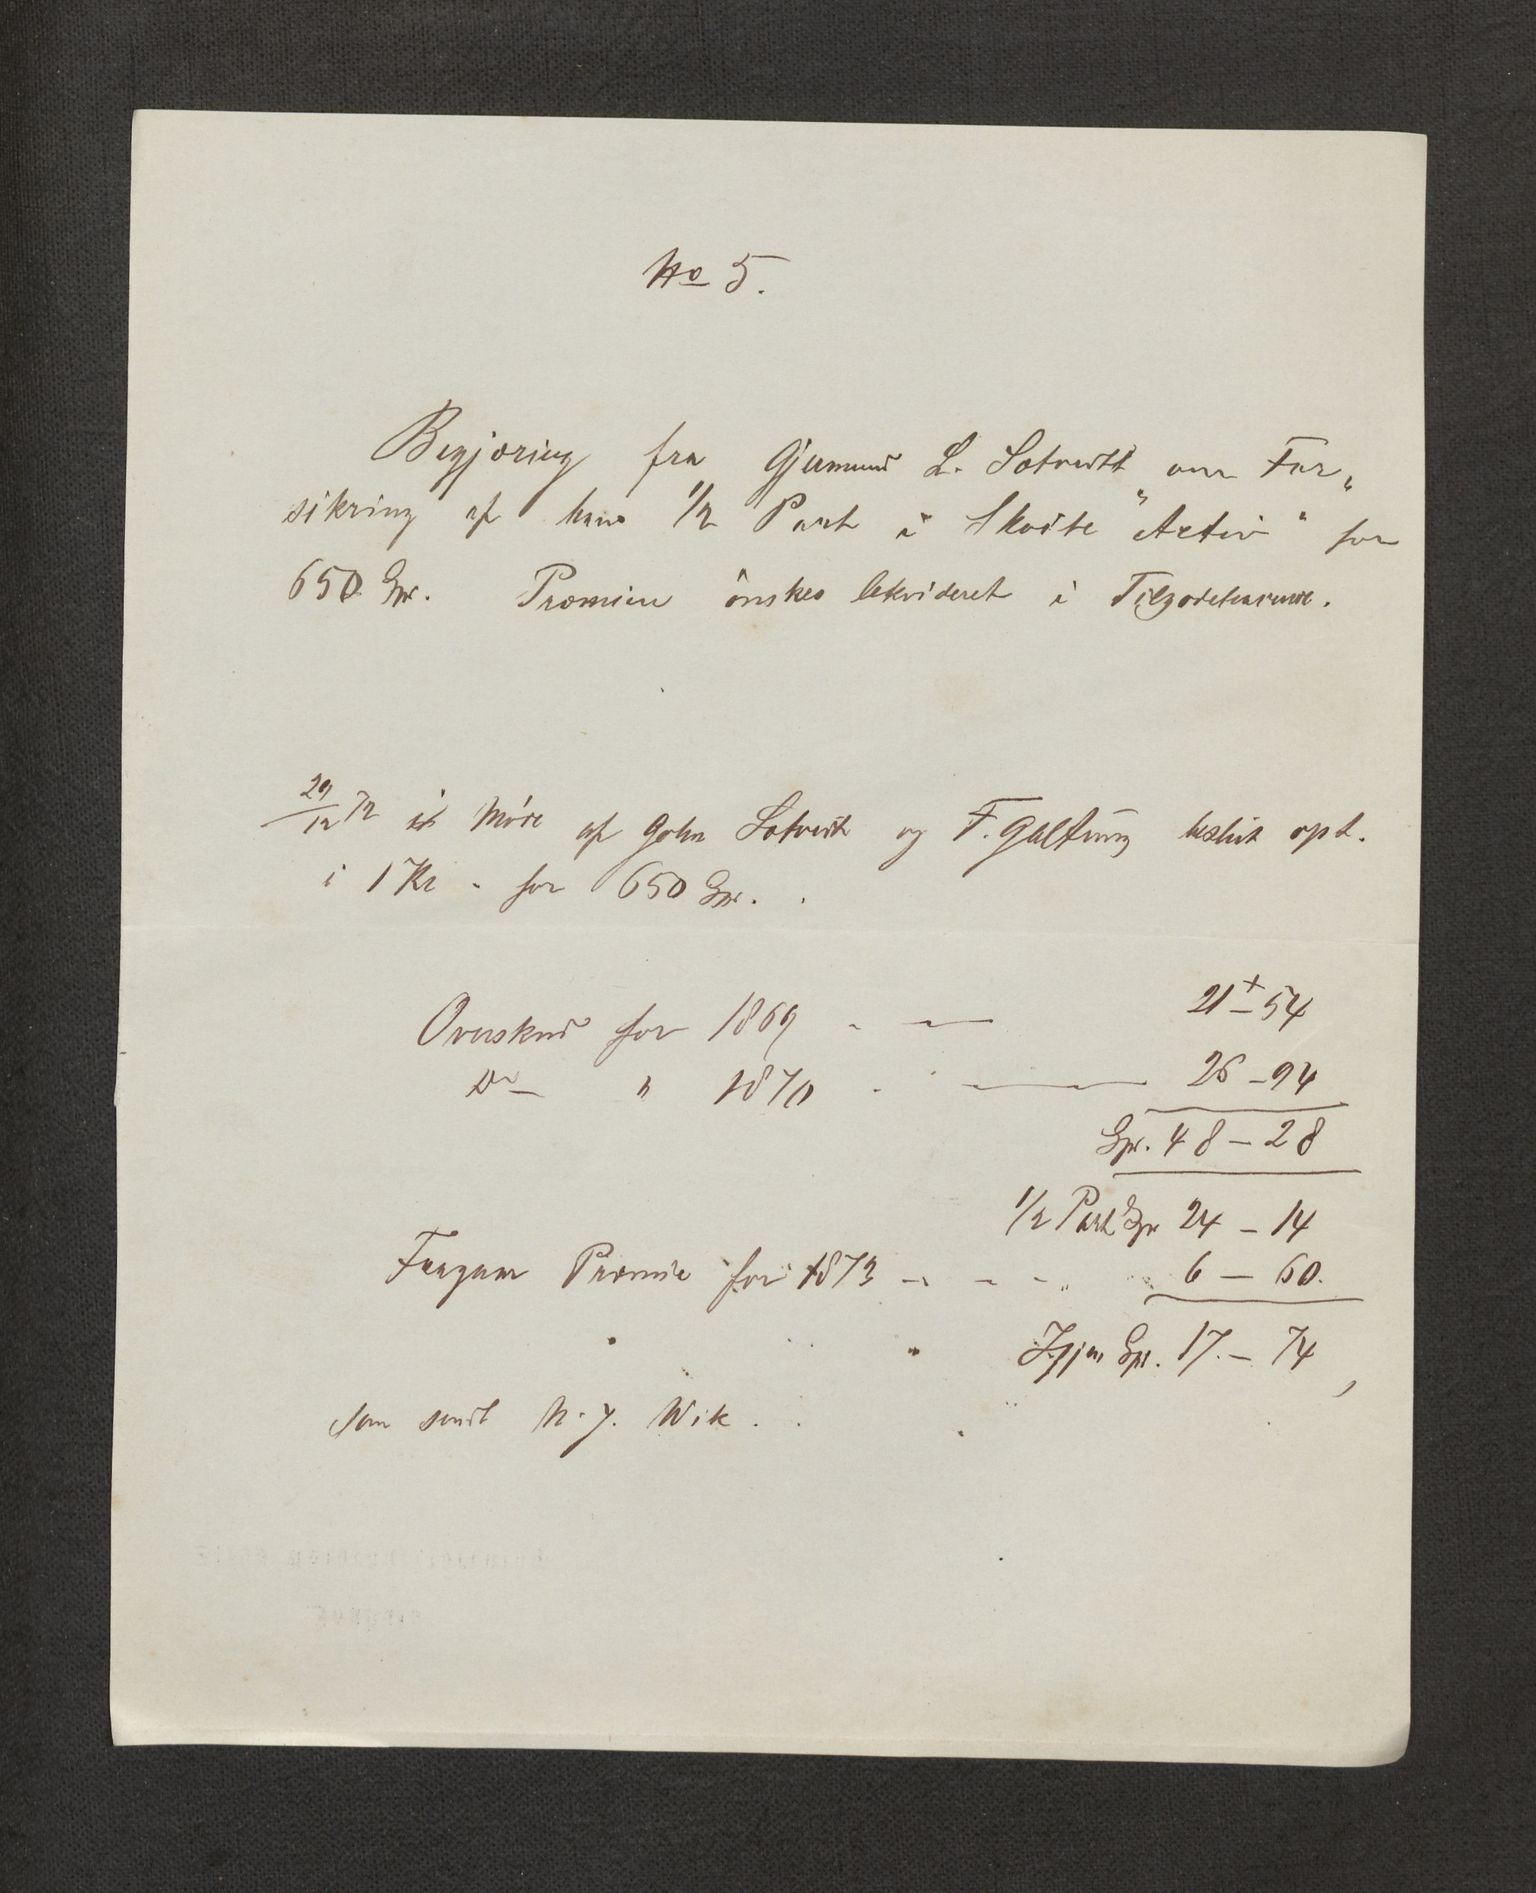 No 5.
Begjæring fra Gjermund L. Sætvedt om For„
sikring af hans 1/2 Part i Skøite "Activ" for
650 Spr. Præmien ønskes likvideret i Tilgodehavende.
29/12 72 i Møde af John Sætvedt og F. Galtung beslut opt.
i 1 Kl. for 650 Spr.
Overskud for 1869 - — 21 - 54
Do — " 1870 - — 26 - 94
Spr. 48 - 28
1/2 Part Spr 24 - 14
Fragaar Præmie for 1873 - - - 6 - 60.
Igjen Spr. 17 - 74,
som sendt N. J. Wik.